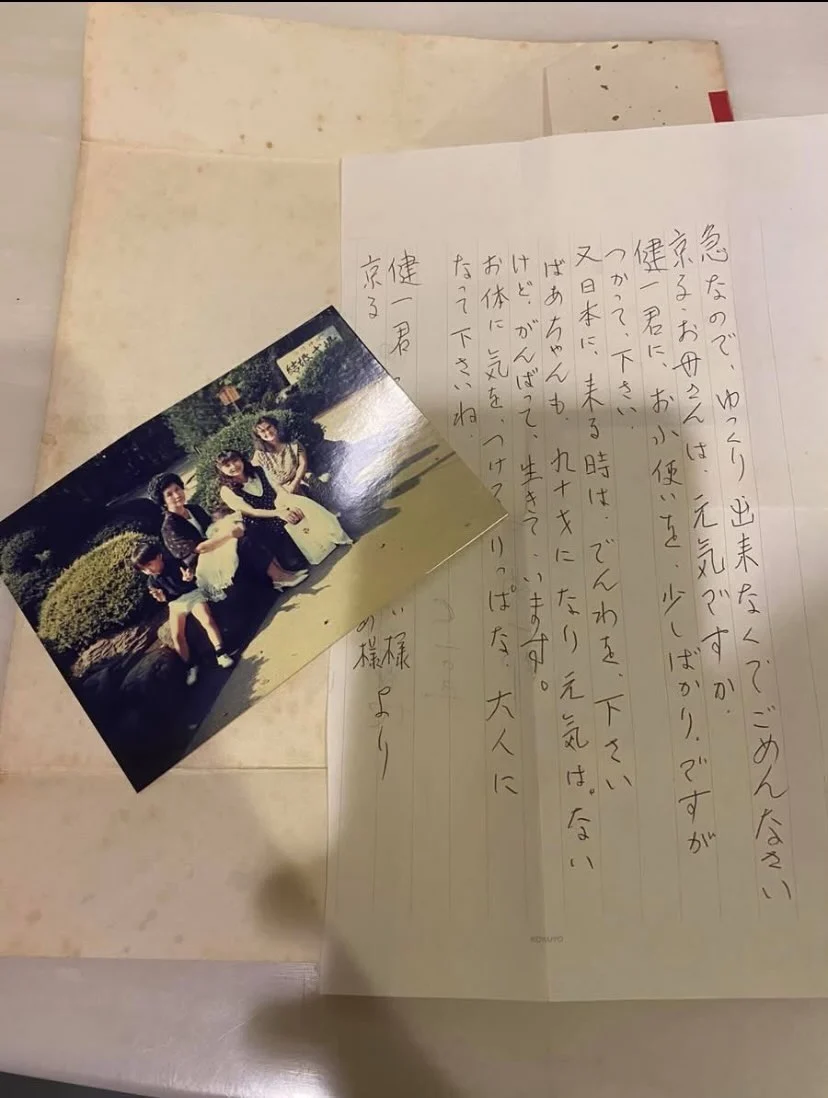 急なので、ゆっくり出来なくてごめんなさい
京る、お母さんは、元気ですか、
健一君に、お小使いを、少しばかり、ですが
つかって、下さい、
又日本に、来る時は、でんわを、下さい
ばあちゃんも、九十才になり元気は。ない
けど、がんばって、生きて、います。
お体に気を、つけて、りっぱな、大人に
なって下さいね、
健一君
い様
京る
め様より
KOKUYO